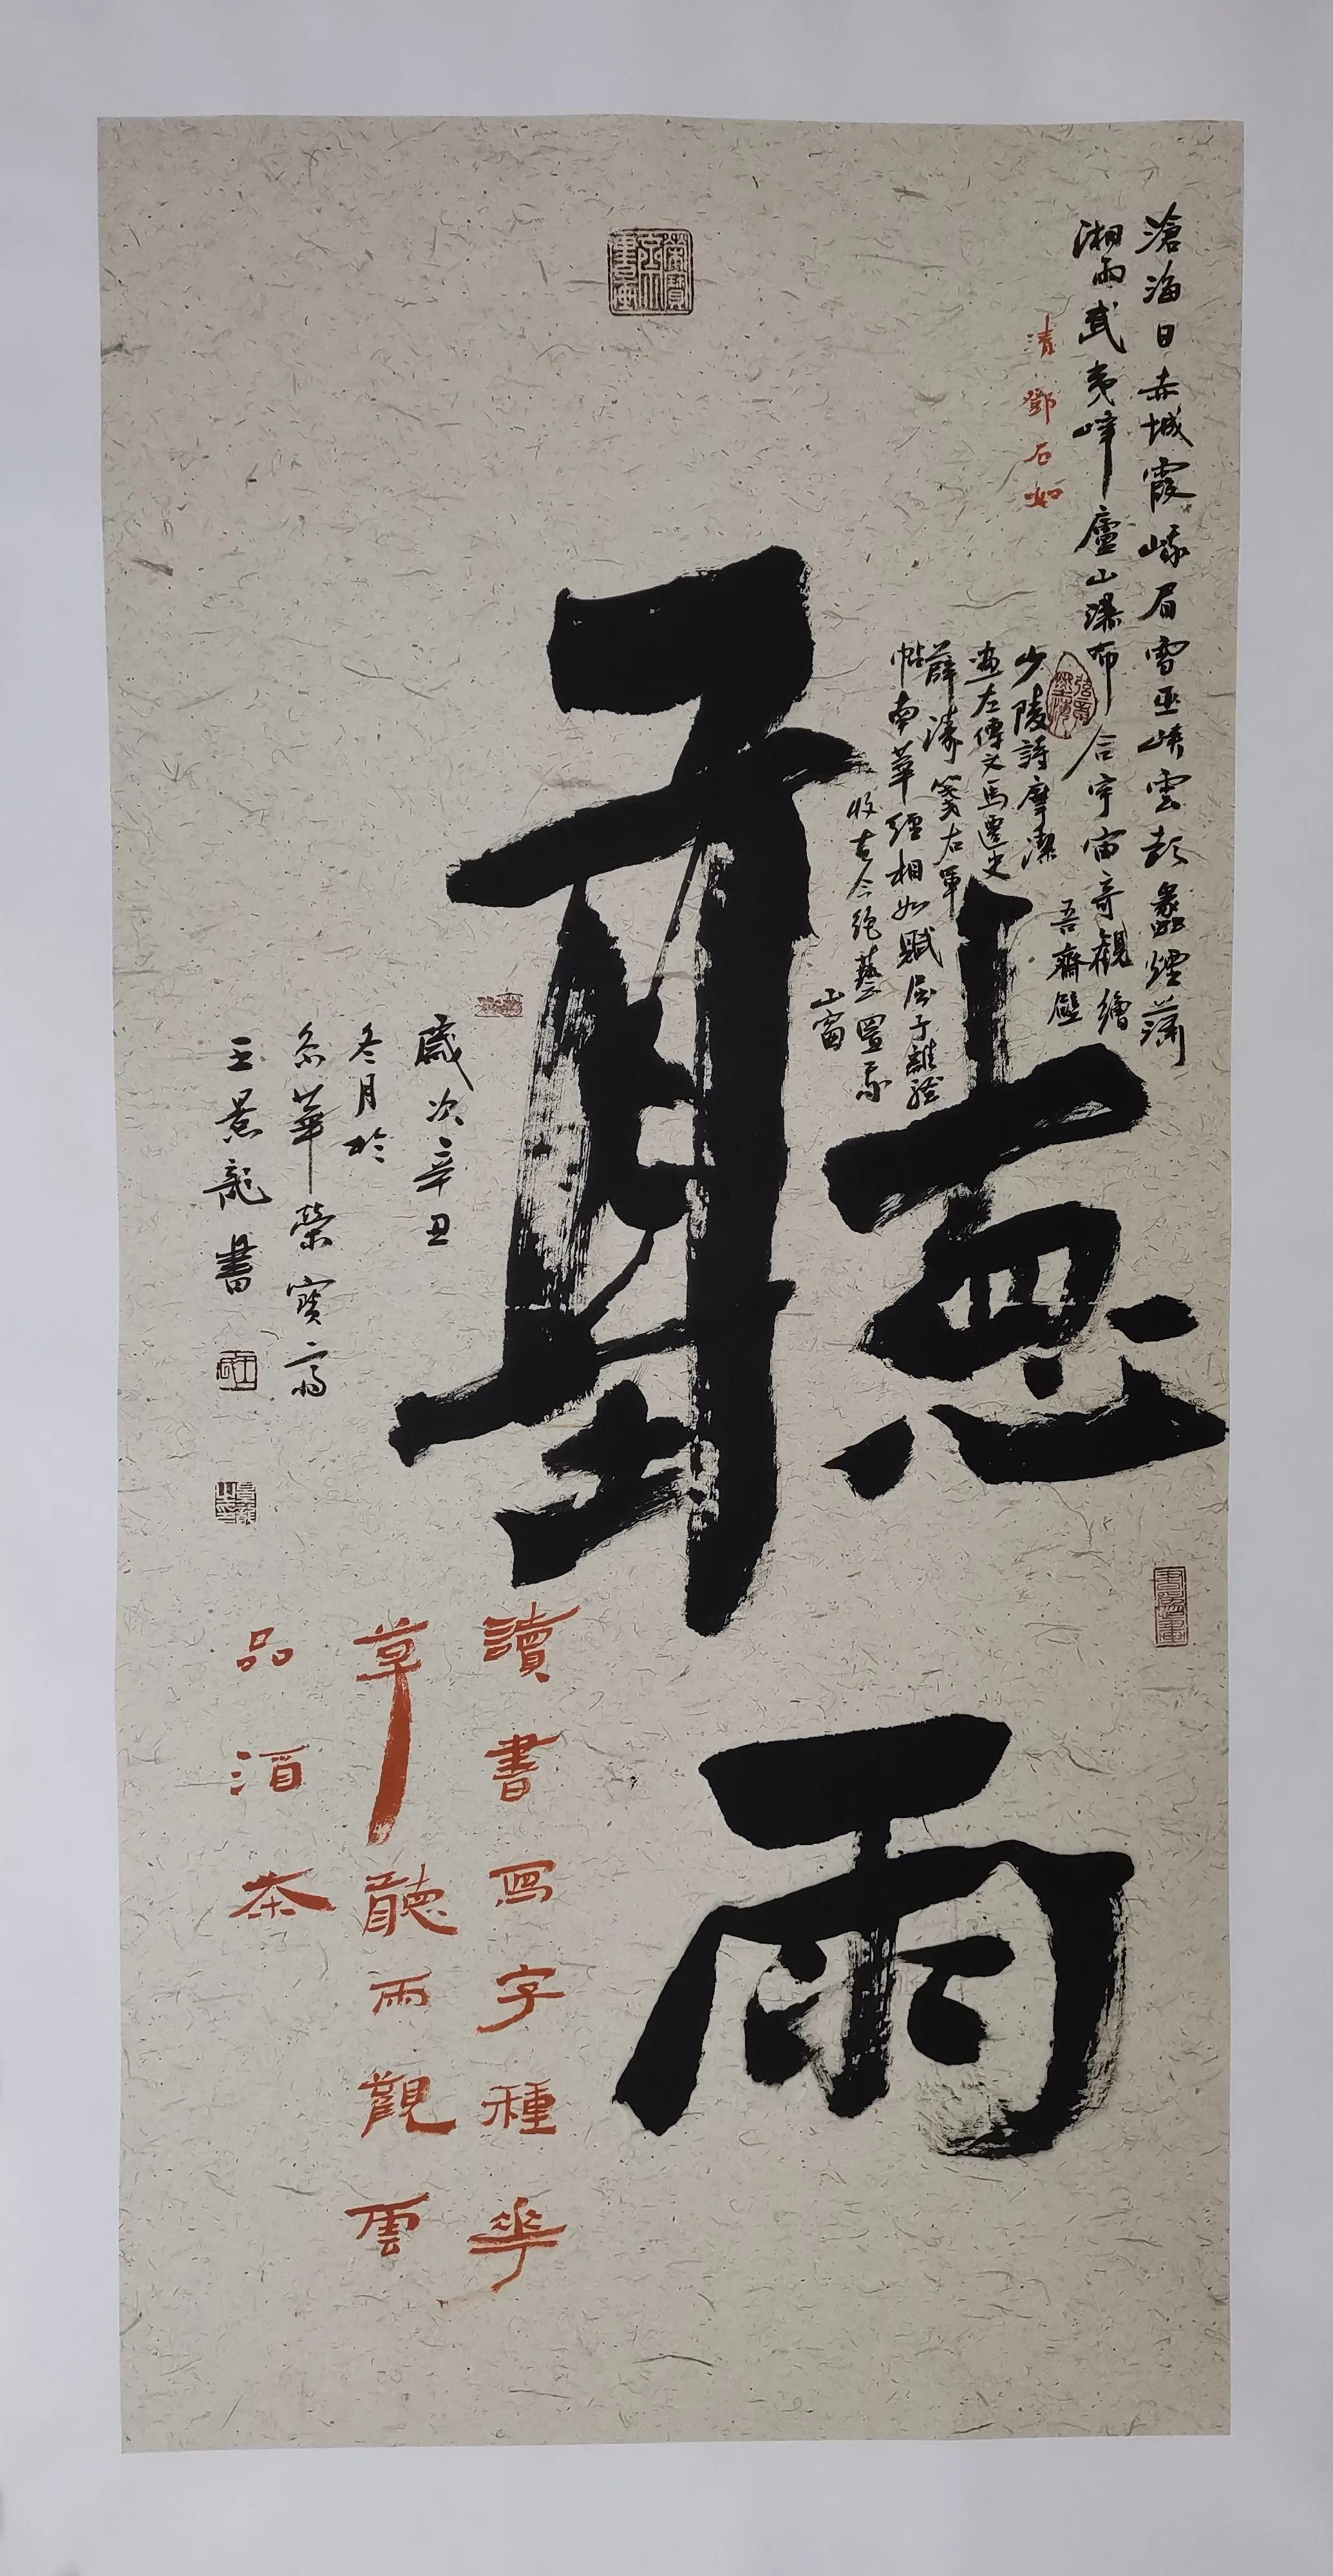 滄海日赤城霞峨眉雪巫峽雲彭蠡煙瀟
湘雨武夷峰廬山瀑布合宇宙奇觀繪
吾齋壁
清鄧石如
少陵詩摩潔
畫左傳文馬遷史
薛濤箋右軍
帖南華經相如賦屈子離騷
收古今絕藝置我
山窗
聽雨
歲次辛丑
冬月於
京華榮寶齋
王景龍書
讀書寫字種花
草聽雨觀雲
品酒茶